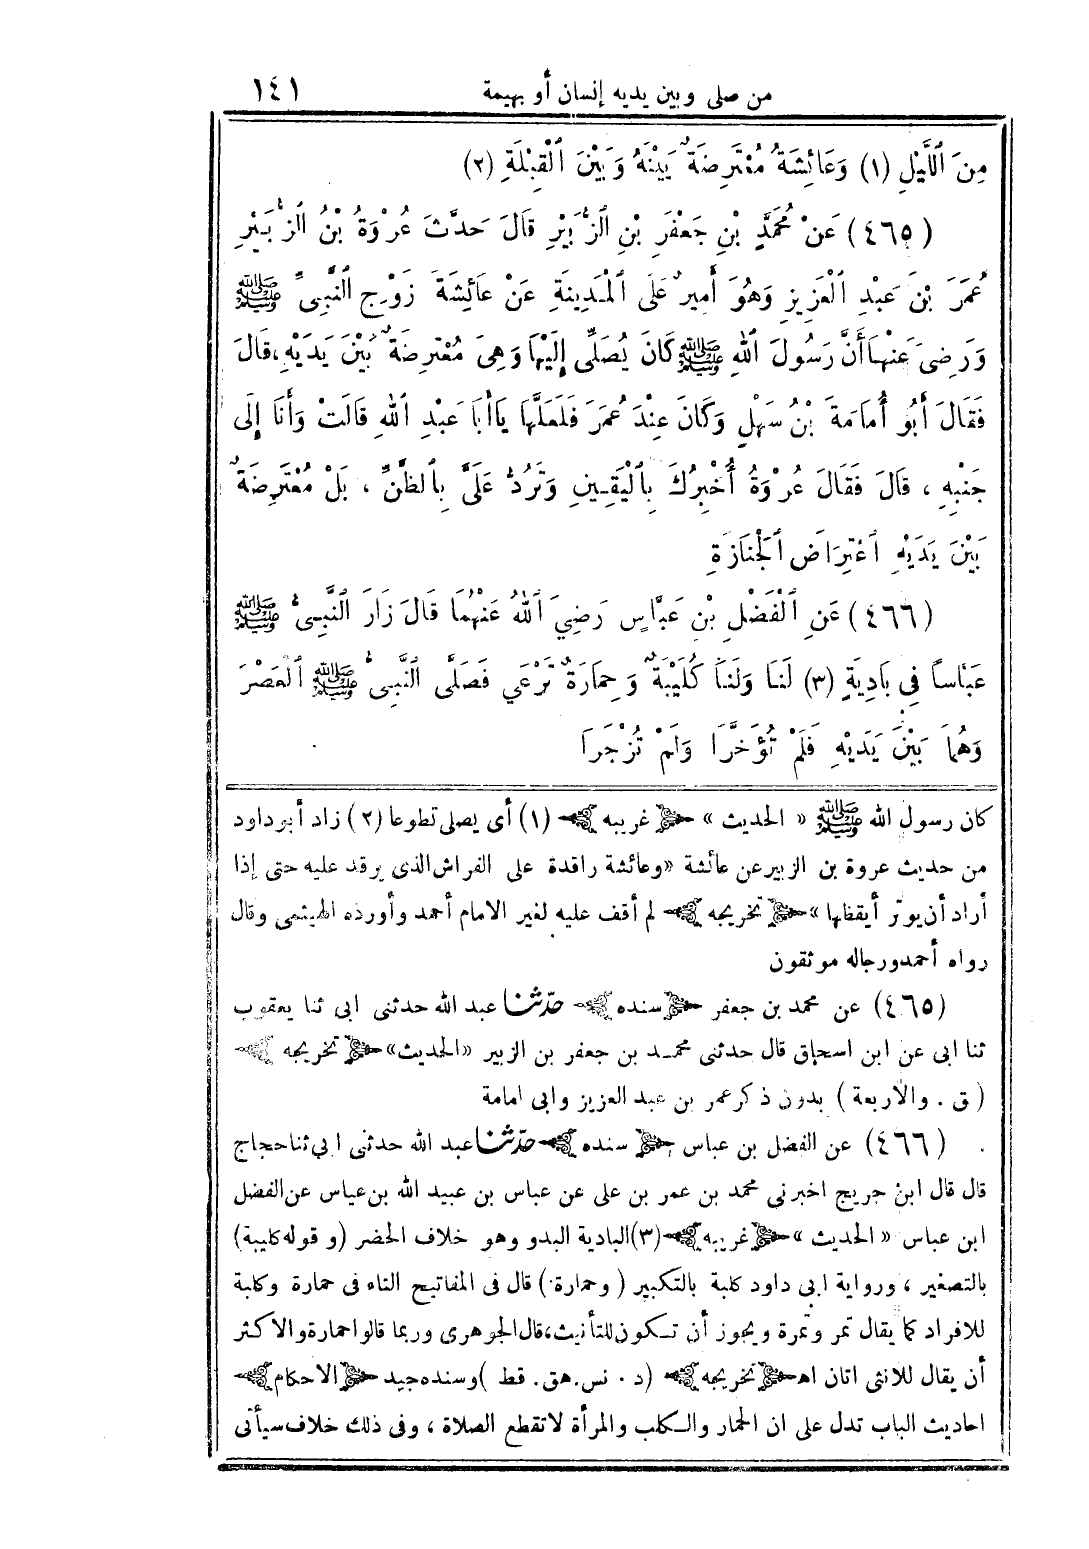 من صلى وبين يديه إنسان أو بهيمة ١٤١
مِنَ ٱللَّيْلِ (١) وَعَائِشَةُ مُعْتَرِضَةٌ بَيْنَهُ وَبَيْنَ ٱلْقِبْلَةِ (٢)
(٤٦٥) عَنْ مُحَمَّدِ بْنِ جَعْفَرِ بْنِ ٱلزُّبَيْرِ قَالَ حَدَّثَ عُرْوَةُ بْنُ ٱلزُّبَيْرِ
عُمَرَ بْنَ عَبْدِ ٱلْعَزِيزِ وَهُوَ أَمِيرٌ عَلَى ٱلْمَدِينَةِ عَنْ عَائِشَةَ زَوْجِ ٱلنَّبِىِّ ﷺ
وَرَضِىَ عَنْهَا أَنَّ رَسُولَ ٱللهِ ﷺ كَانَ يُصَلِّى إِلَيْهَا وَهِىَ مُعْتَرِضَةٌ بَيْنَ يَدَيْهِ، قَالَ
فَقَالَ أَبُو أُمَامَةَ بْنُ سَهْلٍ وَكَانَ عِنْدَ عُمَرَ فَلَعَلَّهَا يَاأَبَا عَبْدِ ٱللهِ قَالَتْ وَأَنَا إِلَى
جَنْبِهِ ، قَالَ فَقَالَ عُرْوَةُ أُخْبِرُكَ بِٱلْيَقِينِ وَتَرُدُّ عَلَىَّ بِٱلظَّنِّ ، بَلْ مُعْتَرِضَةٌ
بَيْنَ يَدَيْهِ ٱعْتِرَاضَ ٱلْجَنَازَةِ
(٤٦٦) عَنِ ٱلْفَضْلِ بْنِ عَبَّاسٍ رَضِيَ ٱللهُ عَنْهُمَا قَالَ زَارَ ٱلنَّبِىُّ ﷺ
عَبَّاساً فِى بَادِيَةٍ (٣) لَنَا وَلَنَا كُلَيْبَةٌ وَحِمَارَةٌ تَرْعَى فَصَلَّى ٱلنَّبِىُّ ﷺ ٱلْعَصْرَ
وَهُمَا بَيْنَ يَدَيْهِ فَلَمْ تُؤَخَّرَا وَلَمْ تُزْجَرَا
كان رسول الله ﷺ « الحديث » ﴿غريبه﴾ (١) أى يصلى تطوعا (٢) زاد أبو داود
من حديث عروة بن الزبير عن عائشة «وعائشة راقدة على الفراش الذى يرقد عليه حتى إذا
أراد أن يوتر أيقظها» ﴿تخريجه﴾ لم أقف عليه لغير الامام أحمد وأورده الهيثمى وقال
رواه أحمد ورجاله موثقون
(٤٦٥) عن محمد بن جعفر ﴿سنده﴾ حدثنا عبد الله حدثنى ابى ثنا يعقوب
ثنا ابى عن ابن اسحاق قال حدثنى محمد بن جعفر بن الزبير «الحديث» ﴿تخريجه﴾
(ق . والأربعة) بدون ذكر عمر بن عبد العزيز وابى امامة
(٤٦٦) عن الفضل بن عباس ﴿سنده﴾ حدثنا عبد الله حدثنى ابي ثنا حجاج
قال قال ابن جريج اخبرنى محمد بن عمر بن على عن عباس بن عبيد الله بن عباس عن الفضل
ابن عباس « الحديث » ﴿غريبه﴾ (٣) البادية البدو وهو خلاف الحضر (وقوله كليبة)
بالتصغير ، ورواية ابى داود كلبة بالتكبير (وحمارة) قال فى المفاتيح التاء فى حمارة وكلبة
للافراد كما يقال تمر وتمرة ويجوز أن تكون للتأنيث، قال الجوهرى وربما قالوا حمارة والاكثر
أن يقال للانثى اتان اه ﴿تخريجه﴾ (د . نس . هق . قط) وسنده جيد ﴿الاحكام﴾
احاديث الباب تدل على ان الحمار والكلب والمرأة لا تقطع الصلاة ، وفى ذلك خلاف سيأتى